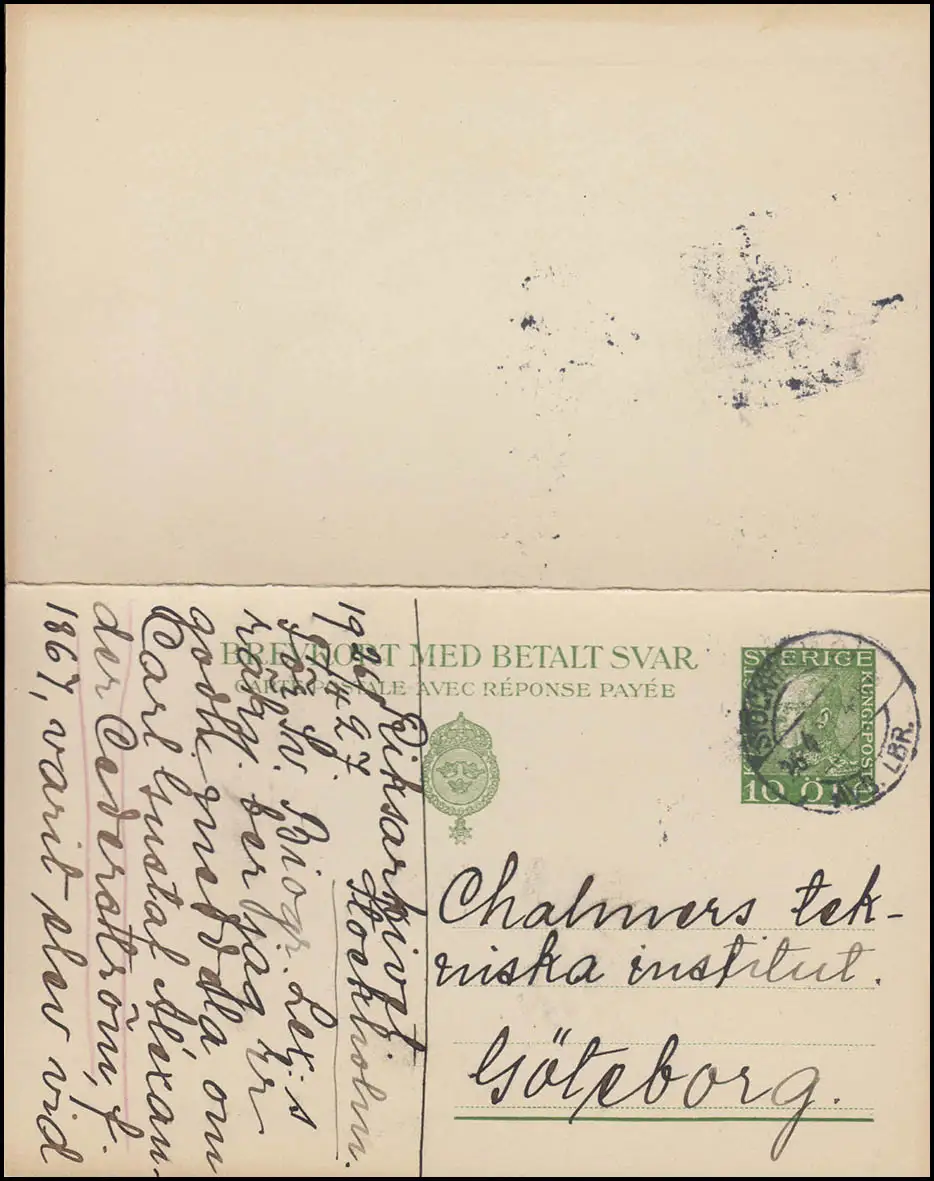 BREVKORT MED BETALT SVAR
CARTE POSTALE AVEC RÉPONSE PAYÉE
SVERIGE
KUNGL. POST
10 ÖRE
STOCKHOLM
26 4
LBR.
Chalmers tek-
niska institut.
Göteborg.
Riksarkivet
Stockholm.
19 26/4 27.
För Sv. Biogr. Lex:s
räkn. ber jag Er
godh. meddela om
Carl Gustaf Alexan-
der Cederström, f.
1867, varit elev vid